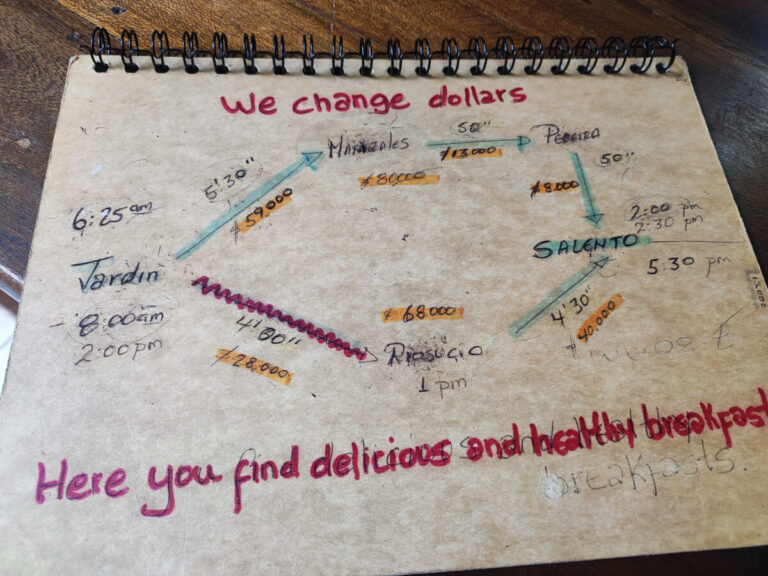 We change dollars
MANIZALES
50''
PEREIRA
5'30''
$13.000
50''
$59.000
$80000
$8.000
6:25am
2:00 pm
2:30 pm
SALENTO
5:30 pm
Jardin
13000
8:00am
$68000
4'30''
2:00pm
4'00''
$40.000
RIOSUCIO
$28.000
1 pm
Here you find delicious and healthy breakfast
breakfasts.